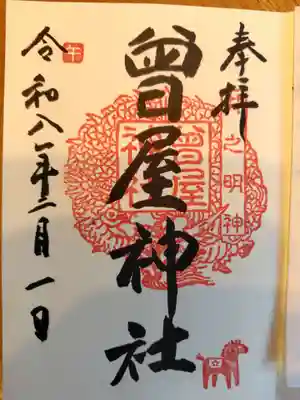 奉拝
之明神
曽屋神社
曽屋
神社
令和八年二月一日
午